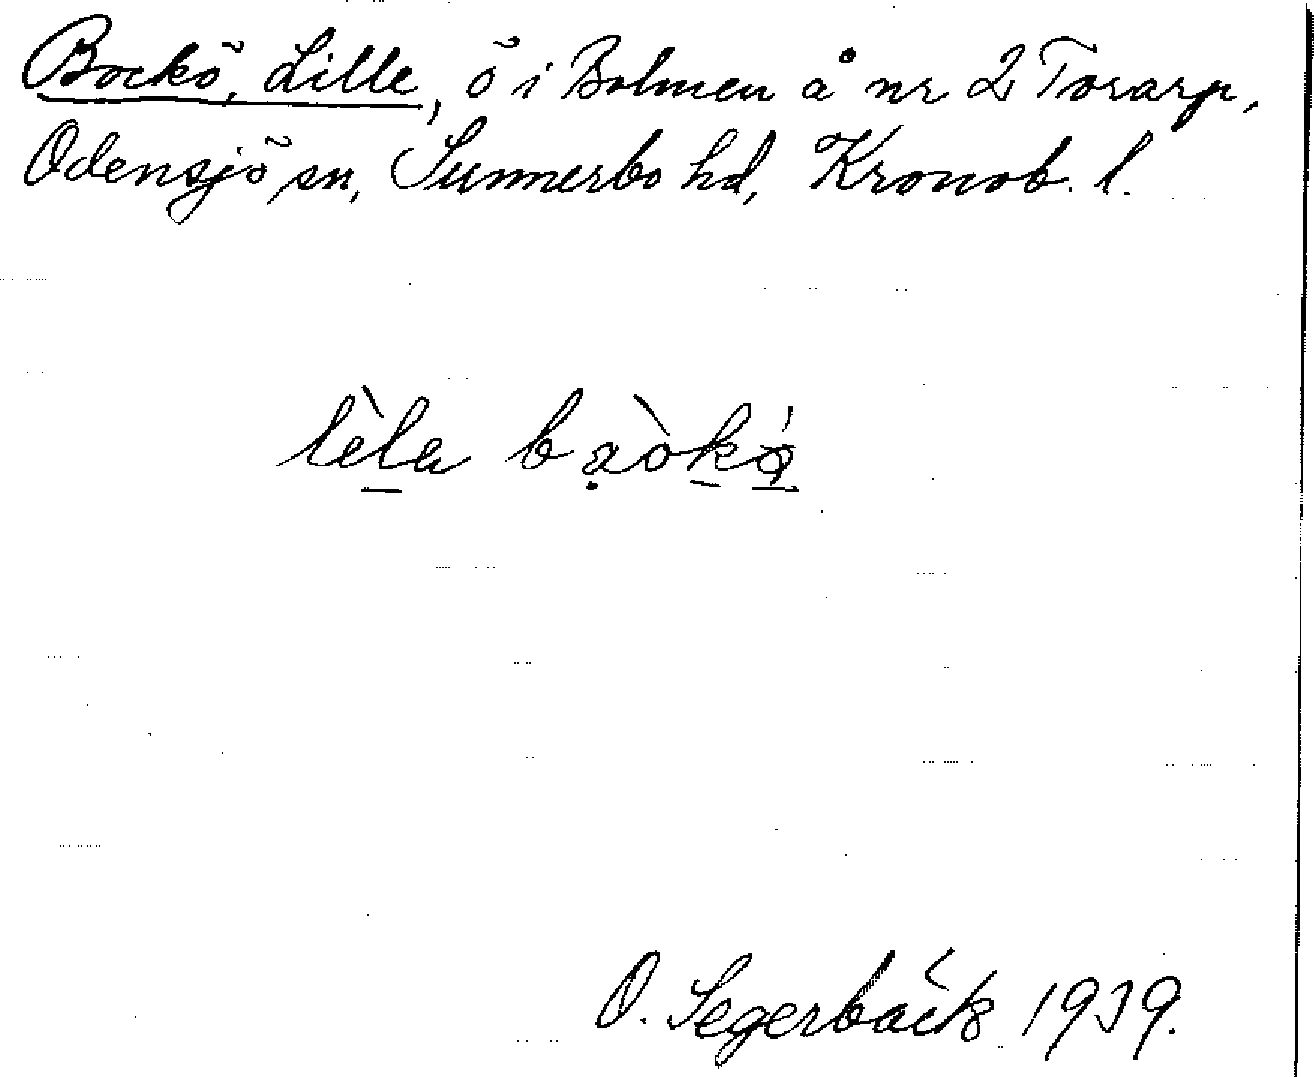 Bockö, Lille, ö i Bolmen å nr 2 Torarp,
Odensjö sn, Sunnerbo hd, Kronob. l.
lèla baòkö́
O. Segerbäck 1939.